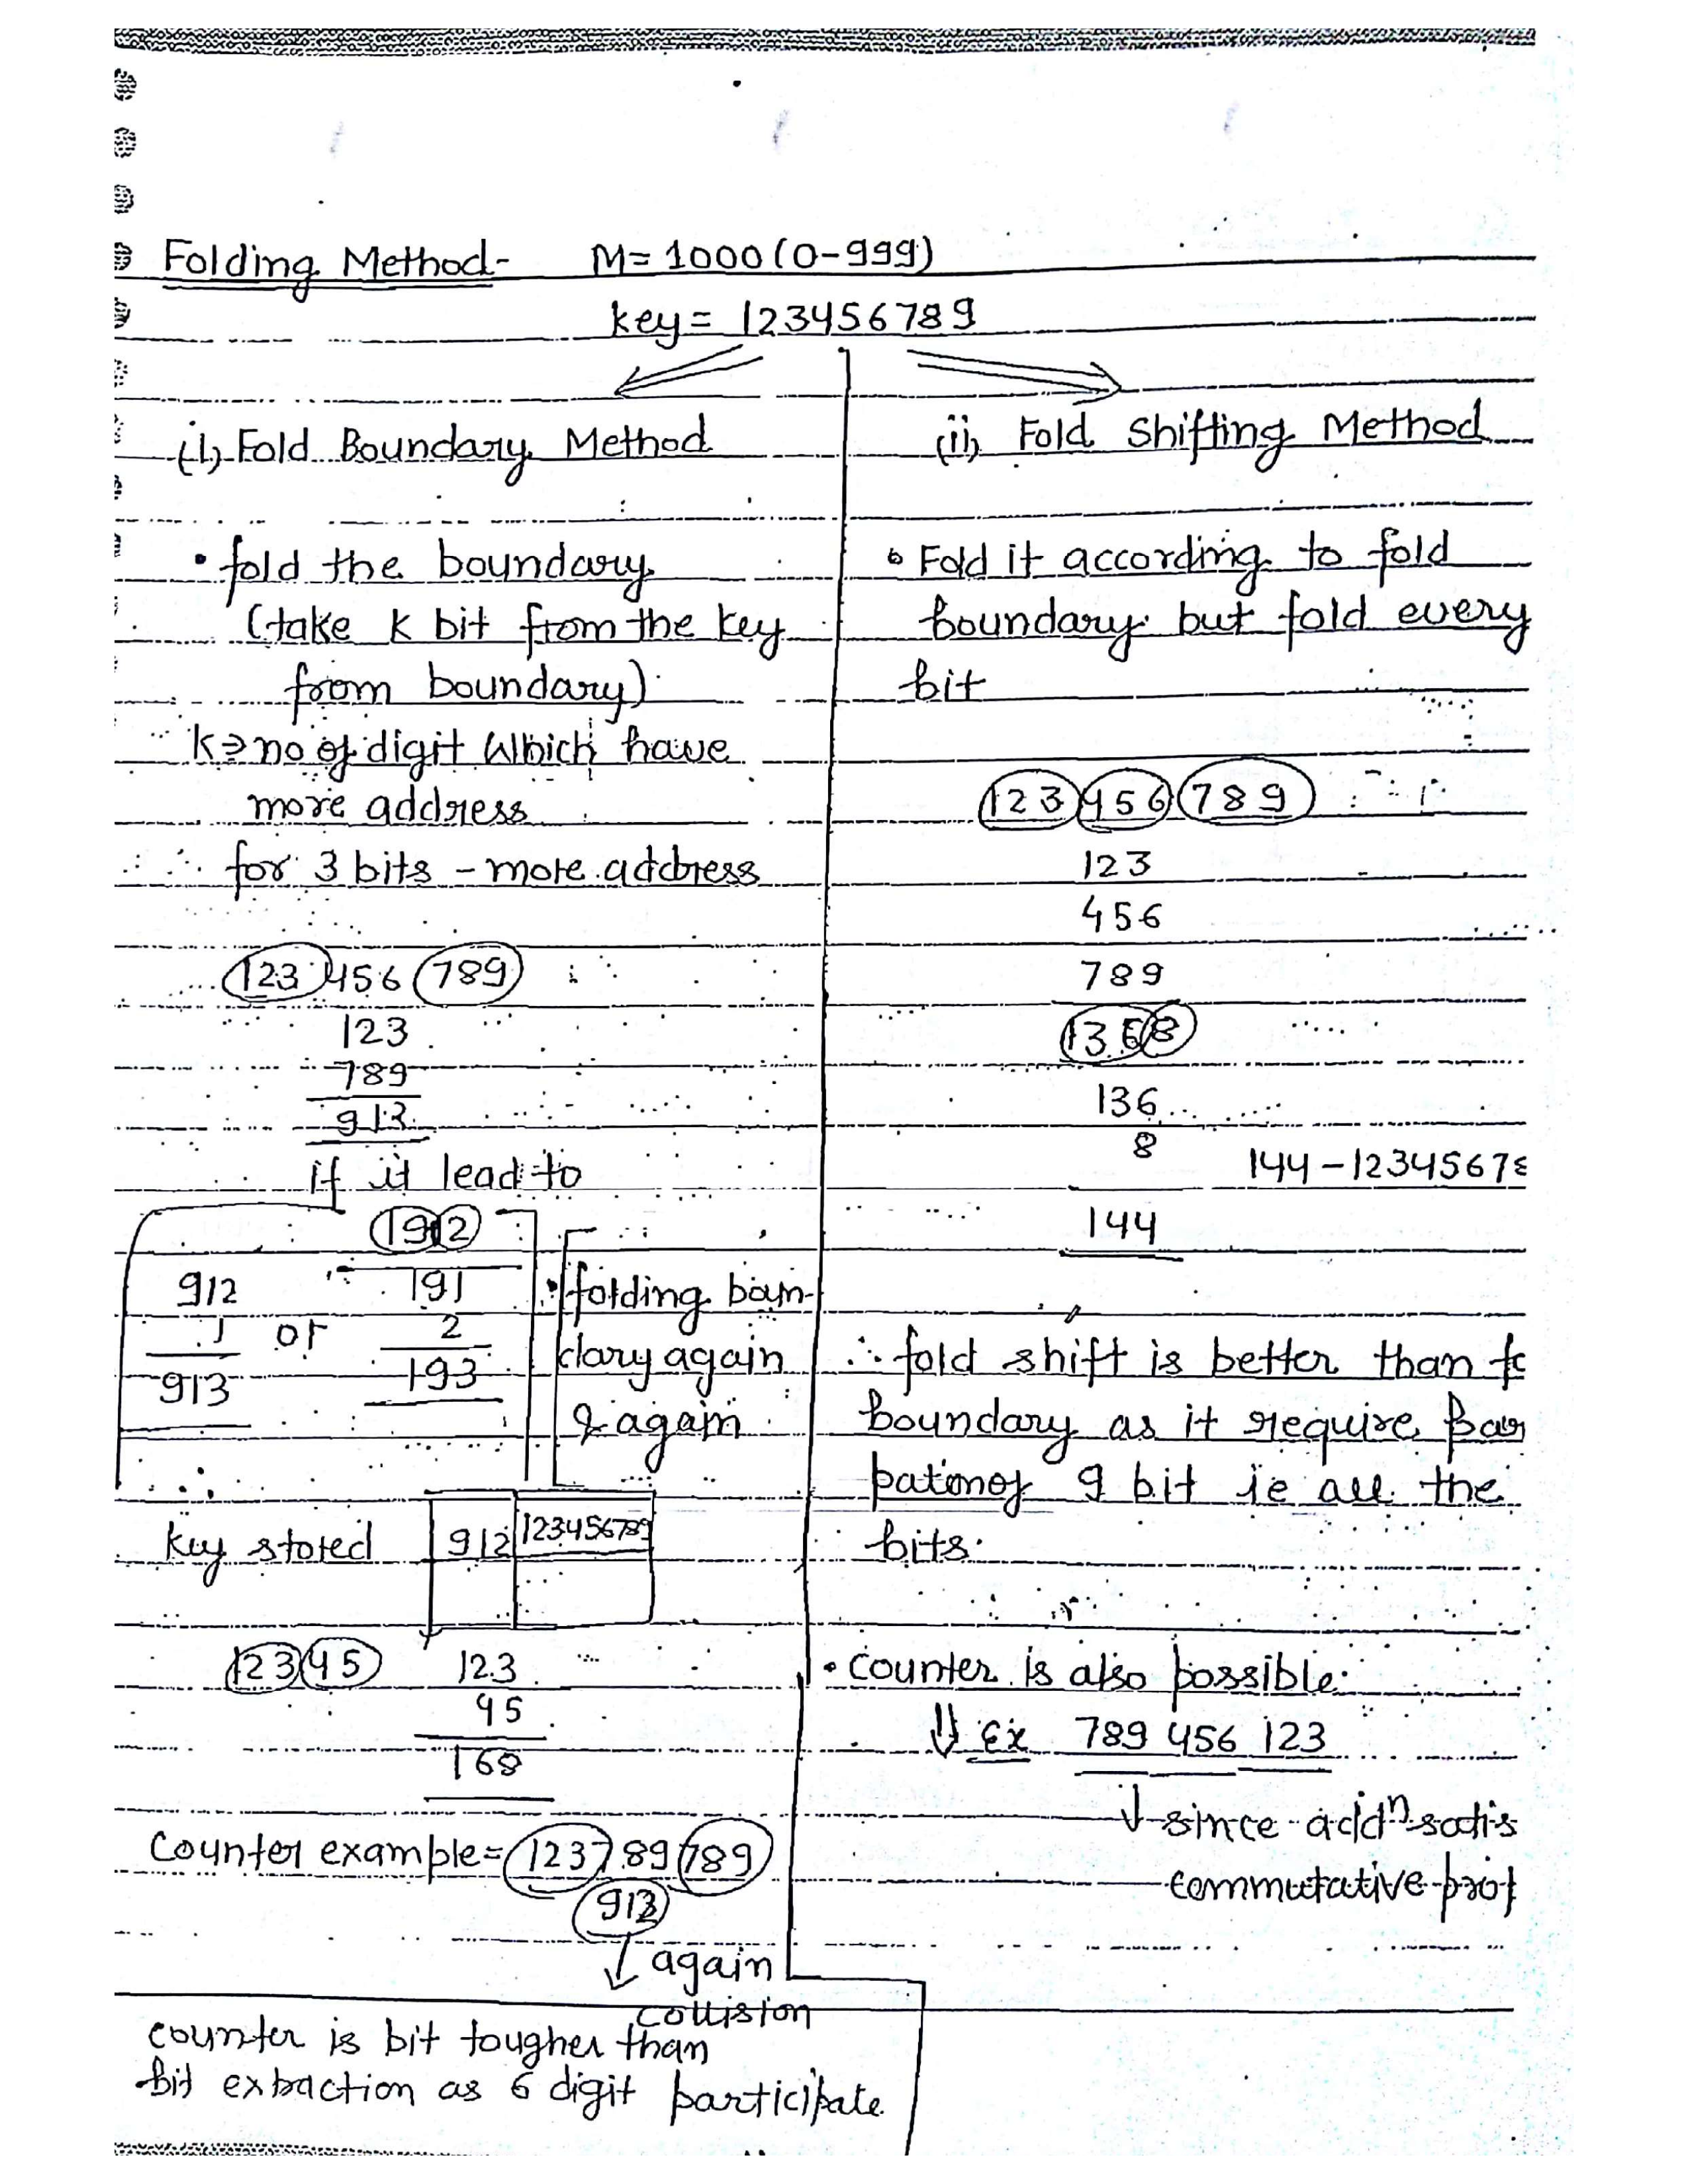 Folding Method- M= 1000 (0-999)
key= 123456789
(i) Fold Boundary Method
• fold the boundary
(take K bit from the key
from boundary)
K⇒no of digit which have
more address
for 3 bits - more address
123 456 789
123
789
913
if it lead to
1912
912 191
1 or 2
913 193
• folding boun-
dary again
& again
∴
key stored 912 123456789
12345 123
45
168
Counter example= 123789789
912
↓ again
collision
counter is bit tougher than
bit extraction as 6 digit participate
(ii) Fold Shifting Method
• Fold it according to fold
boundary but fold every
bit
123 456 789
123
456
789
1368
136
8
144 - 1234567
144
∴ fold shift is better than
boundary as it require
9 bit ie all the
bits.
• counter is also possible.
⇓ Ex 789 456 123
↓ since addn satis
commutative prop